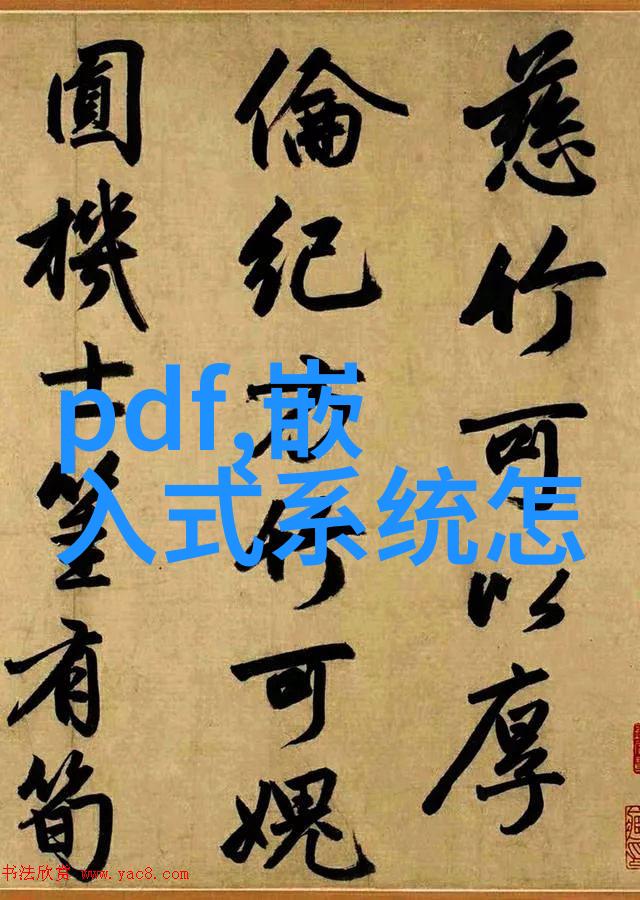 慈竹可以厚
倫紀方竹可愧
圓機士筀有筍
pdf,嵌
入式系统怎
书法欣赏 www.yac8.com